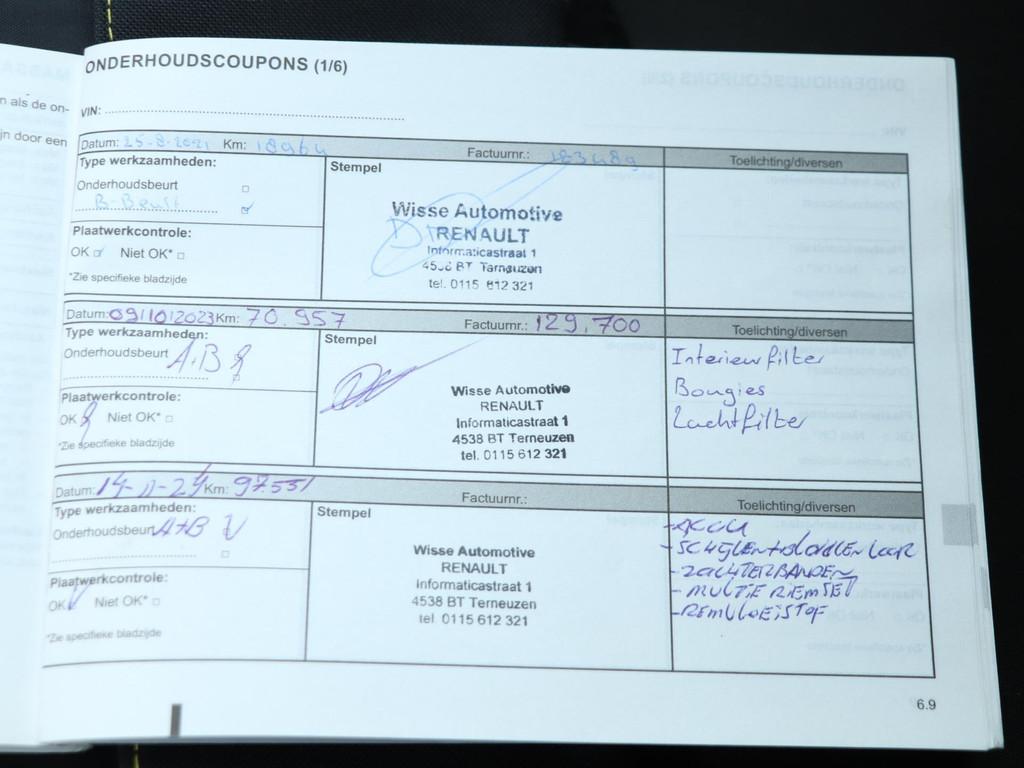 n als de on-
jn door een
ONDERHOUDSCOUPONS (1/6)
VIN:
Datum: 25-8-2021 Km: 18964 Factuurnr.: 183489
Type werkzaamheden:
Stempel
Toelichting/diversen
Onderhoudsbeurt
B-Beurt
Plaatwerkcontrole:
OK Niet OK*
*Zie specifieke bladzijde
Wisse Automotive
RENAULT
Informaticastraat 1
4538 BT Terneuzen
tel. 0115 612 321
Datum: 09/10/2023 Km: 70.957 Factuurnr.: 129.700
Type werkzaamheden:
Stempel
Toelichting/diversen
Onderhoudsbeurt A+B
Plaatwerkcontrole:
OK Niet OK*
*Zie specifieke bladzijde
Wisse Automotive
RENAULT
Informaticastraat 1
4538 BT Terneuzen
tel. 0115 612 321
Interieurfilter
Bougies
Luchtfilter
Datum: 14-11-24 Km: 97.551 Factuurnr.:
Type werkzaamheden:
Stempel
Toelichting/diversen
Onderhoudsbeurt A+B
Plaatwerkcontrole:
OK Niet OK*
*Zie specifieke bladzijde
Wisse Automotive
RENAULT
Informaticastraat 1
4538 BT Terneuzen
tel. 0115 612 321
-ACCU
-SCHIJVEN+BLOKKEN
-2 ACHTERBANDEN
-MULTIE RIEMSET
-REMVLOEISTOF
6.9